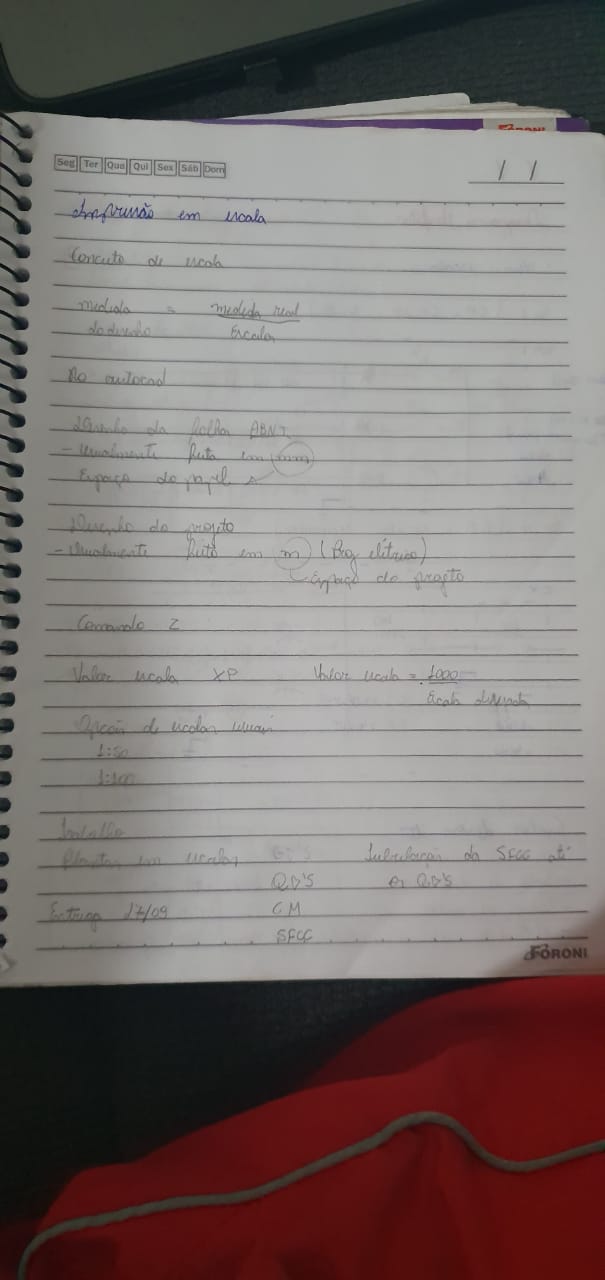 FORONI
Seg Ter Qua Qui Sex Sáb Dom
/ /
Impressão em escala
Conceito de escala
medida = medida real
do desenho Escala
No autocad
Desenho da folha ABNT
- Usualmente feita em mm
Espaço do papel
Desenho do projeto
- Usualmente feito em m (Proj elétrico)
Espaço do projeto
Comando Z
Valor escala XP Valor escala = 1000
Escala desejada
Opções de escalas usuais
1:50
1:100
Trabalho
Plantas em escalas Subutilização da SFCC até
QD'S os QD'S
Entrega 27/09 CM
SFCC
FORONI